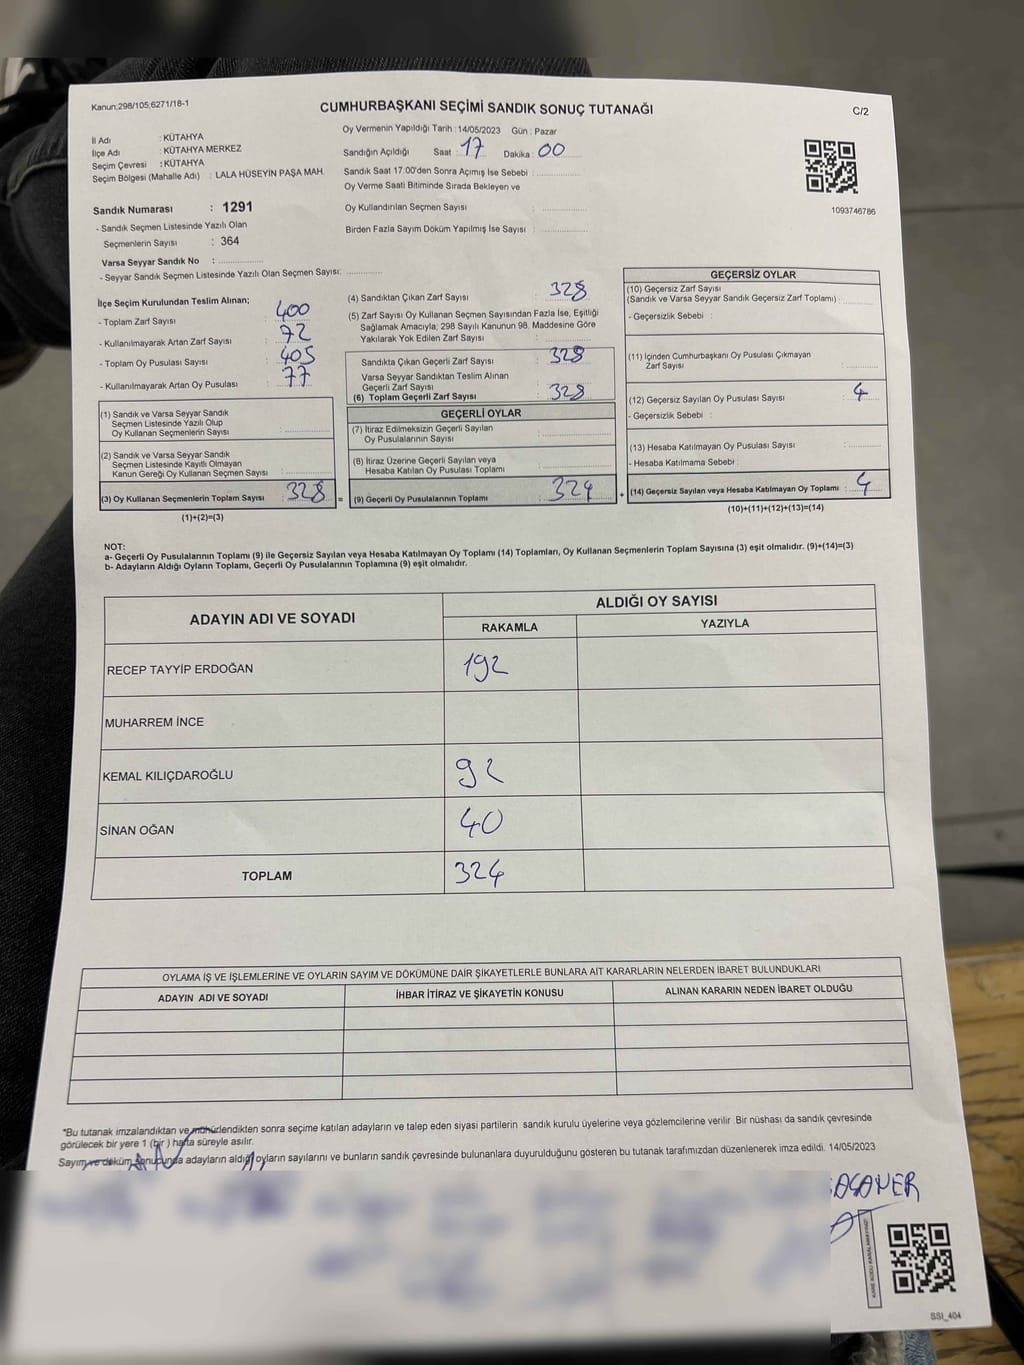 Kanun:298/105,6271/18-1
CUMHURBAŞKANI SEÇİMİ SANDIK SONUÇ TUTANAĞI
C/2
İl Adı : KÜTAHYA
İlçe Adı : KÜTAHYA MERKEZ
Seçim Çevresi : KÜTAHYA
Seçim Bölgesi (Mahalle Adı) : LALA HÜSEYİN PAŞA MAH.
Sandık Numarası : 1291
- Sandık Seçmen Listesinde Yazılı Olan
Seçmenlerin Sayısı : 364
Varsa Seyyar Sandık No :
- Seyyar Sandık Seçmen Listesinde Yazılı Olan Seçmen Sayısı:
Oy Vermenin Yapıldığı Tarih : 14/05/2023 Gün : Pazar
Sandığın Açıldığı Saat : 17 Dakika : 00
Sandık Saat 17:00'den Sonra Açımış İse Sebebi :
Oy Verme Saati Bitiminde Sırada Bekleyen ve
Oy Kullandırılan Seçmen Sayısı :
Birden Fazla Sayım Döküm Yapılmış İse Sayısı :
1093746786
İlçe Seçim Kurulundan Teslim Alınan;
- Toplam Zarf Sayısı : 400
- Kullanılmayarak Artan Zarf Sayısı : 72
- Toplam Oy Pusulası Sayısı : 405
- Kullanılmayarak Artan Oy Pusulası : 77
(1) Sandık ve Varsa Seyyar Sandık
Seçmen Listesinde Yazılı Olup
Oy Kullanan Seçmenlerin Sayısı :
(2) Sandık ve Varsa Seyyar Sandık
Seçmen Listesinde Kayıtlı Olmayan
Kanun Gereği Oy Kullanan Seçmen Sayısı :
(3) Oy Kullanan Seçmenlerin Toplam Sayısı : 328 =
(1)+(2)=(3)
(4) Sandıktan Çıkan Zarf Sayısı : 328
(5) Zarf Sayısı Oy Kullanan Seçmen Sayısından Fazla İse, Eşitliği
Sağlamak Amacıyla; 298 Sayılı Kanunun 98. Maddesine Göre
Yakılarak Yok Edilen Zarf Sayısı :
Sandıkta Çıkan Geçerli Zarf Sayısı : 328
Varsa Seyyar Sandıktan Teslim Alınan
Geçerli Zarf Sayısı :
(6) Toplam Geçerli Zarf Sayısı : 328
GEÇERLİ OYLAR
(7) İtiraz Edilmeksizin Geçerli Sayılan
Oy Pusulalarının Sayısı :
(8) İtiraz Üzerine Geçerli Sayılan veya
Hesaba Katılan Oy Pusulası Toplamı :
(9) Geçerli Oy Pusulalarının Toplamı : 324 +
GEÇERSİZ OYLAR
(10) Geçersiz Zarf Sayısı
(Sandık ve Varsa Seyyar Sandık Geçersiz Zarf Toplamı) :
- Geçersizlik Sebebi :
(11) İçinden Cumhurbaşkanı Oy Pusulası Çıkmayan
Zarf Sayısı :
(12) Geçersiz Sayılan Oy Pusulası Sayısı : 4
- Geçersizlik Sebebi :
(13) Hesaba Katılmayan Oy Pusulası Sayısı :
- Hesaba Katılmama Sebebi :
(14) Geçersiz Sayılan veya Hesaba Katılmayan Oy Toplamı : 4
(10)+(11)+(12)+(13)=(14)
NOT:
a- Geçerli Oy Pusulalarının Toplamı (9) ile Geçersiz Sayılan veya Hesaba Katılmayan Oy Toplamı (14) Toplamları, Oy Kullanan Seçmenlerin Toplam Sayısına (3) eşit olmalıdır. (9)+(14)=(3)
b- Adayların Aldığı Oyların Toplamı, Geçerli Oy Pusulalarının Toplamına (9) eşit olmalıdır.
ADAYIN ADI VE SOYADI
ALDIĞI OY SAYISI
RAKAMLA YAZIYLA
RECEP TAYYİP ERDOĞAN 192
MUHARREM İNCE
KEMAL KILIÇDAROĞLU 92
SİNAN OĞAN 40
TOPLAM 324
OYLAMA İŞ VE İŞLEMLERİNE VE OYLARIN SAYIM VE DÖKÜMÜNE DAİR ŞİKAYETLERLE BUNLARA AİT KARARLARIN NELERDEN İBARET BULUNDUKLARI
ADAYIN ADI VE SOYADI İHBAR İTİRAZ VE ŞİKAYETİN KONUSU ALINAN KARARIN NEDEN İBARET OLDUĞU
*Bu tutanak imzalandıktan ve mühürlendikten sonra seçime katılan adayların ve talep eden siyasi partilerin sandık kurulu üyelerine veya gözlemcilerine verilir. Bir nüshası da sandık çevresinde
görülecek bir yere 1 (bir ) hafta süreyle asılır.
Sayım ve döküm sonucunda adayların aldığı oyların sayılarını ve bunların sandık çevresinde bulunanlara duyurulduğunu gösteren bu tutanak tarafımızdan düzenlenerek imza edildi. 14/05/2023
SSI_404